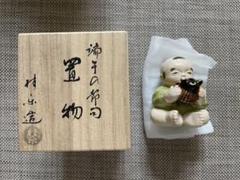 端午の節句
置物
造